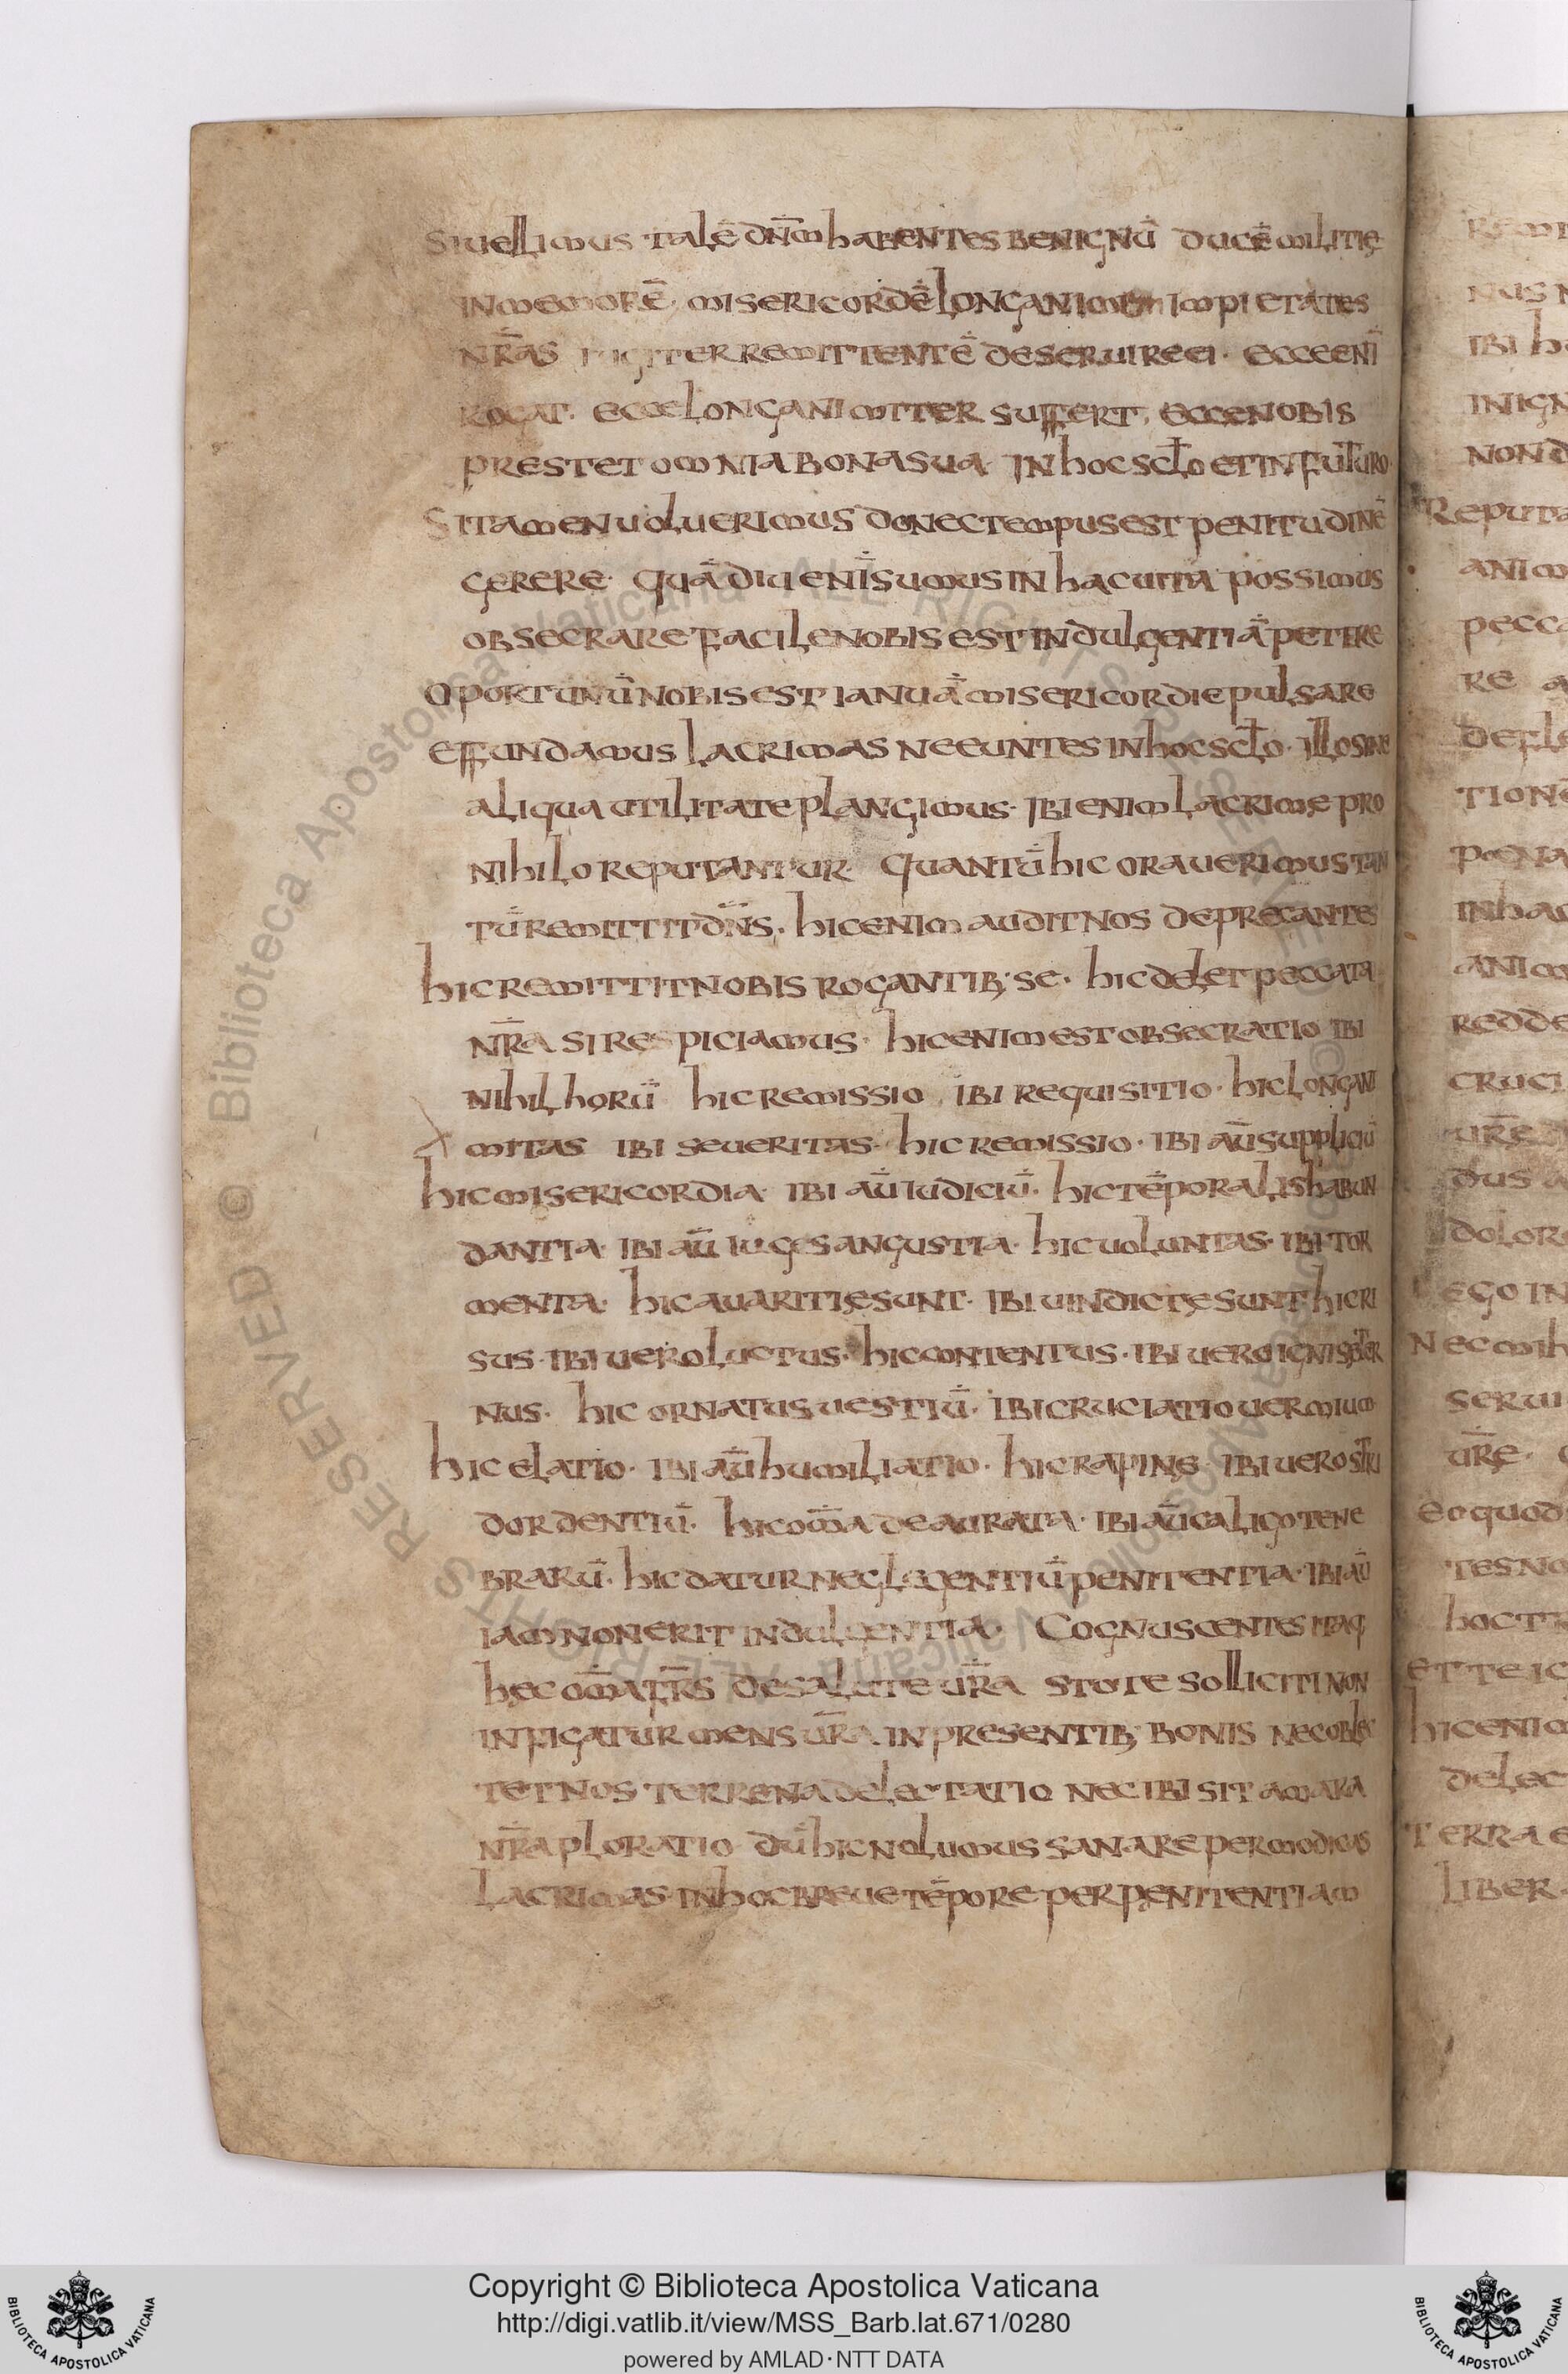 Siuellimus talē dn̄m habentes benignū ducē militię
inmemorē misericordē longanimem impietates
nr̄as iugiter remittentē deseruire ei · ecce enī
rogat · ecce longanimiter suffert, ecce nobis
prestet omnia bona sua in hoc scło et in futuro
Si tamen uoluerimus donec tempus est penitudinē
gerere · quādiu enī sumus in hac uita possimus
obsecrare facile nobis est indulgentiā petere
Oportunū nobis est ianuā misericordie pulsare
effundamus lacrimas ne euntes in hoc scło · illo sine
aliqua utilitate plangimus · Ibi enim lacrime pro
nihilo reputantur quantū hic orauerimus tan
tū remittit dn̄s · hic enim audit nos deprecantes
hic remittit nobis rogantib; se · hic delet peccata
nr̄a si respiciamus · hic enim est obsecratio ibi
nihil horū hic remissio ibi requisitio · hic longani
mitas ibi seueritas · hic remissio · ibi aū suppliciū
hic misericordia ibi aū iudiciū · hic tēporalis habun
dantia · ibi aū iuges angustia · hic uoluntas · ibi tor
menta · hic auaritię sunt · Ibi uindictę sunt hic ri
sus · ibi uero luctus · hic contentus · ibi uero ignis ęter
nus · hic ornatus uestiū · Ibi cruciatio uermium
hic elatio · ibi aū humiliatio · hic rapinę ibi uero stri
dor dentiū · hic om̄a deaurata · ibi aū caligo tene
brarū · hic datur neglegentiū penitentia · ibi aū
iam non erit indulgentia · Cognuscentes itaq
hec om̄a fr̄s de salute ur̄a stote solliciti non
infigatur mens ur̄a in presentib; bonis nec oblec
tet nos terrena delectatio nec ibi sit amara
nr̄a ploratio dū hic nolumus sanare per modicas
lacrimas in hoc breue tēpore per penitentiam
Copyright © Biblioteca Apostolica Vaticana
http://digi.vatlib.it/view/MSS_Barb.lat.671/0280
powered by AMLAD·NTT DATA